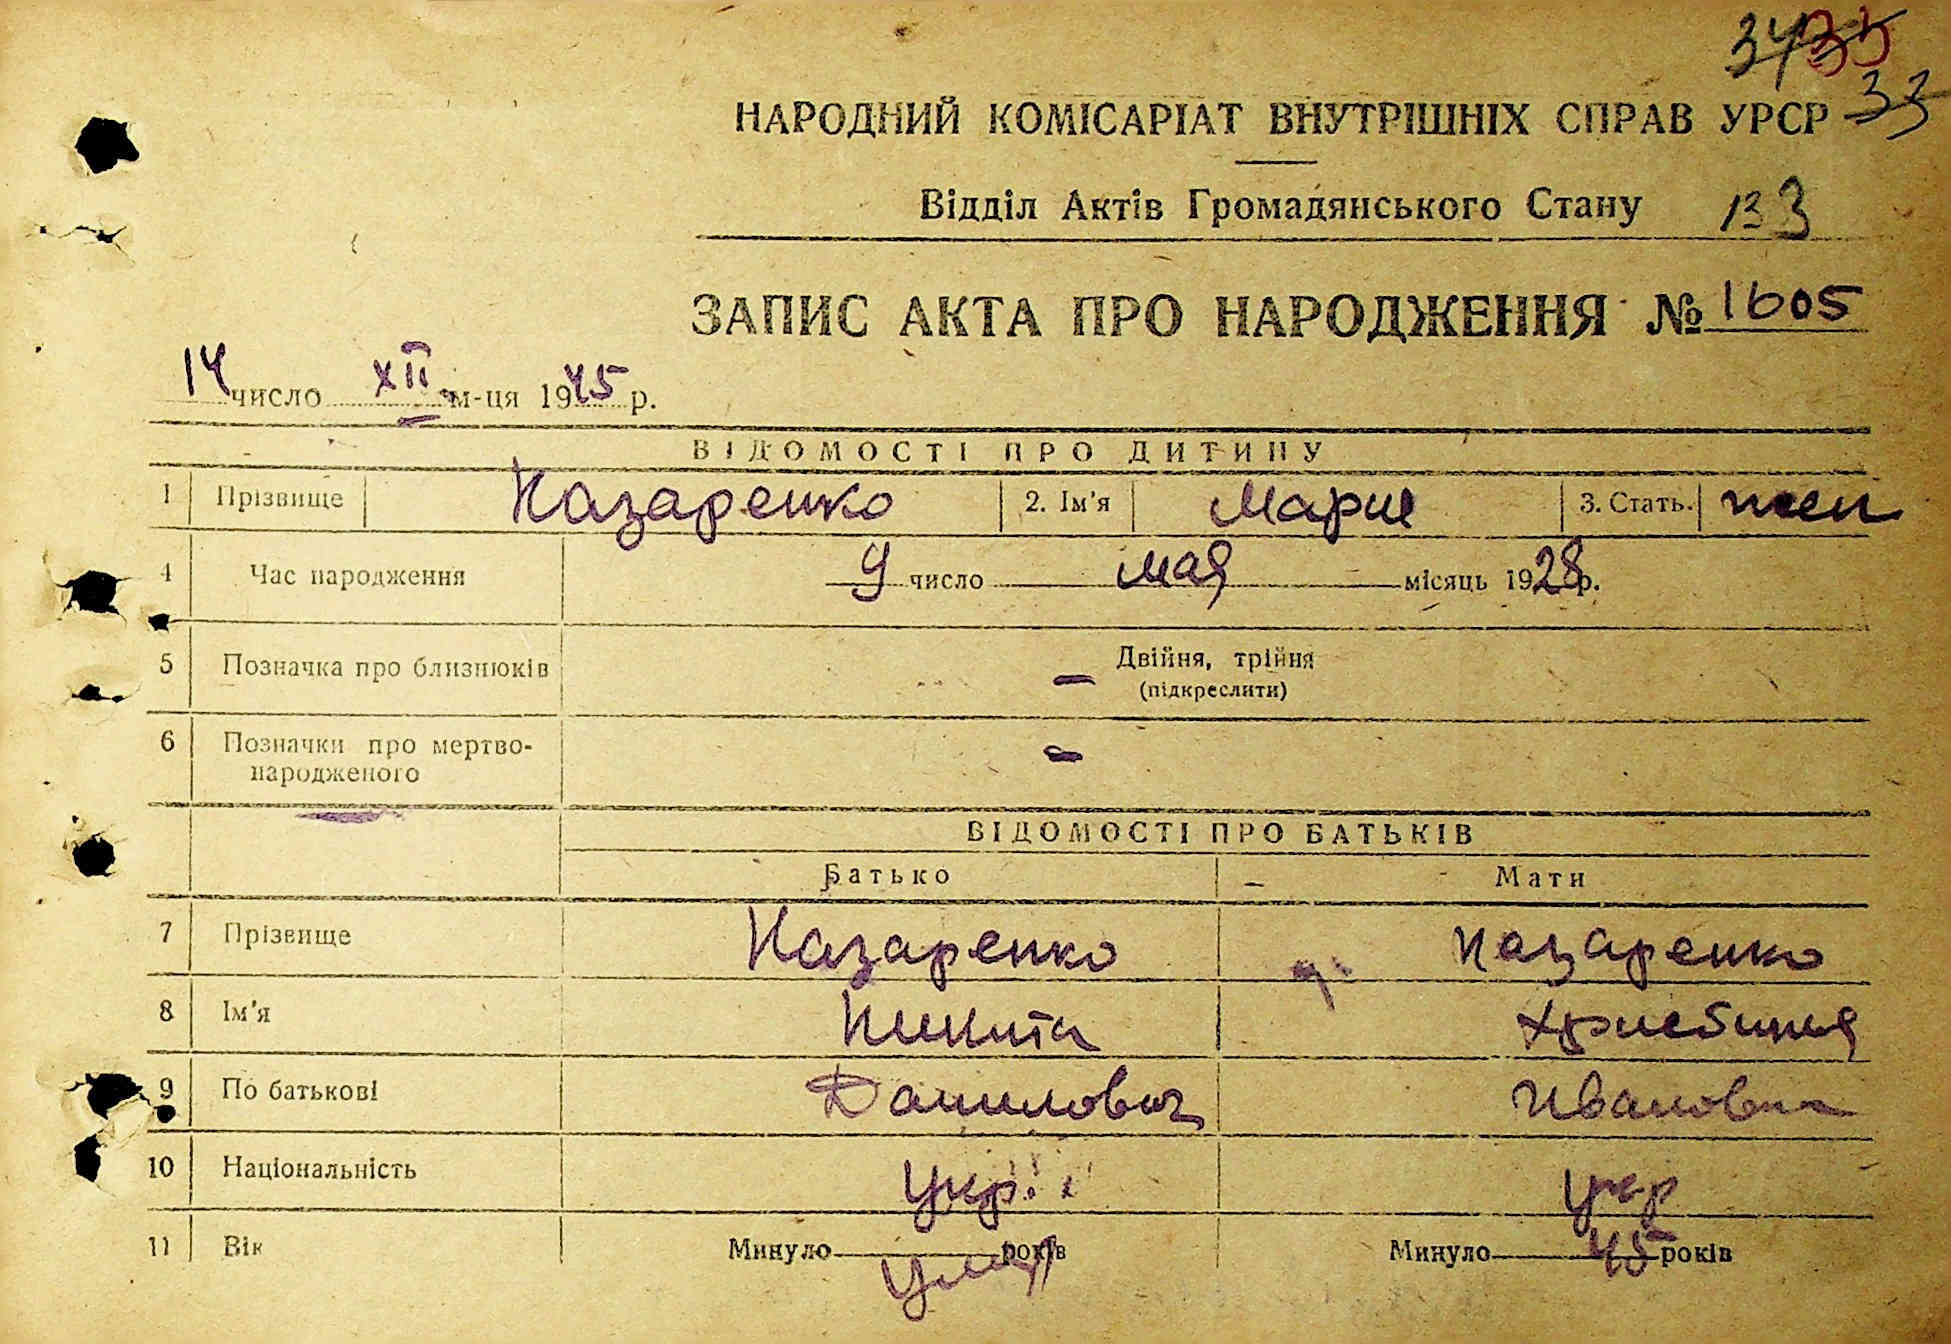 34 35
33
НАРОДНИЙ КОМІСАРІАТ ВНУТРІШНІХ СПРАВ УРСР
Відділ Актів Громадянського Стану 133
ЗАПИС АКТА ПРО НАРОДЖЕННЯ № 1605
14 число XII м-ця 1945 р.
ВІДОМОСТІ ПРО ДИТИНУ
1 Прізвище Назаренко 2. Ім'я Мария 3. Стать. жен
4 Час народження 9 число мая місяць 1928 р.
5 Позначка про близнюків — Двійня, трійня
(підкреслити)
6 Позначки про мертво-
народженого —
ВІДОМОСТІ ПРО БАТЬКІВ
Батько Мати
7 Прізвище Назаренко Назаренко
8 Ім'я Никита
9 По батькові Данилович Ивановна
10 Національність Укр. укр
11 Вік Минуло років Минуло 45 років
умер